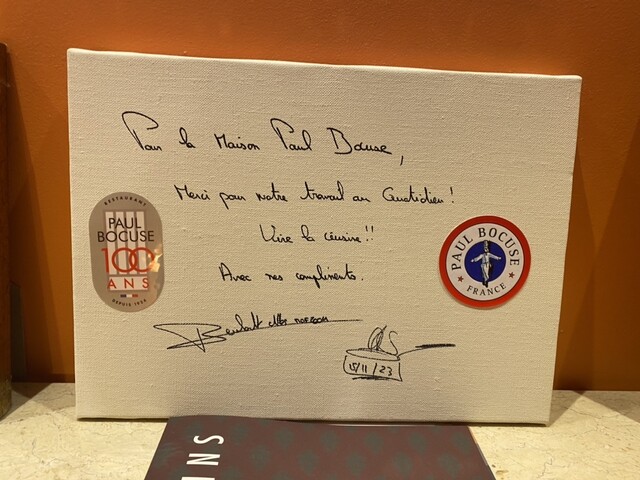 Pour la Maison Paul Bocuse,
Merci pour notre travail au Quotidien !
Vive la cuisine !!
Avec nos compliments.
15/11/23
RESTAURANT
PAUL
BOCUSE
100
ANS
DEPUIS 1924
PAUL BOCUSE
FRANCE
SN